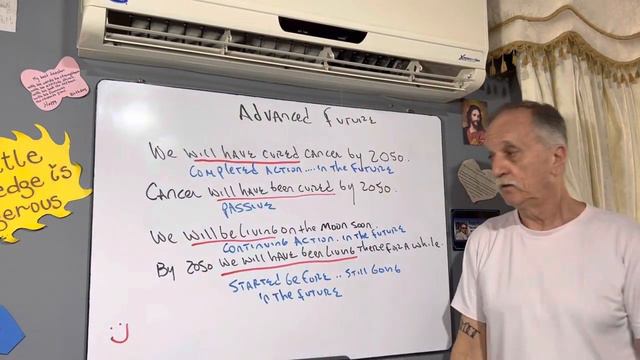 My best teacher
Happy Birthday
ttle
edge is
gerous
Advanced Future
We will have cured cancer by 2050.
COMPLETED ACTION....in the FUTURE
Cancer will have been cured by 2050.
PASSIVE
We will be living on the Moon soon.
CONTINUING ACTION. in the FUTURE
By 2050 we will have been living there for a while.
STARTED BEFORE .. STILL GOING
in the FUTURE